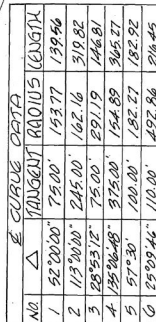 ⅊ CURVE DATA
NO. △ TANGENT RADIUS LENGTH
1 52°00'00" 75.00' 153.77 139.56
2 113°00'00" 245.00' 162.16 319.82
3 28°53'12" 75.00' 291.19 146.81
4 135°06'48" 375.00' 154.89 365.27
5 57°30' 100.00' 182.27 182.92
6 25°09'46" 110.00' 492.86 216.45